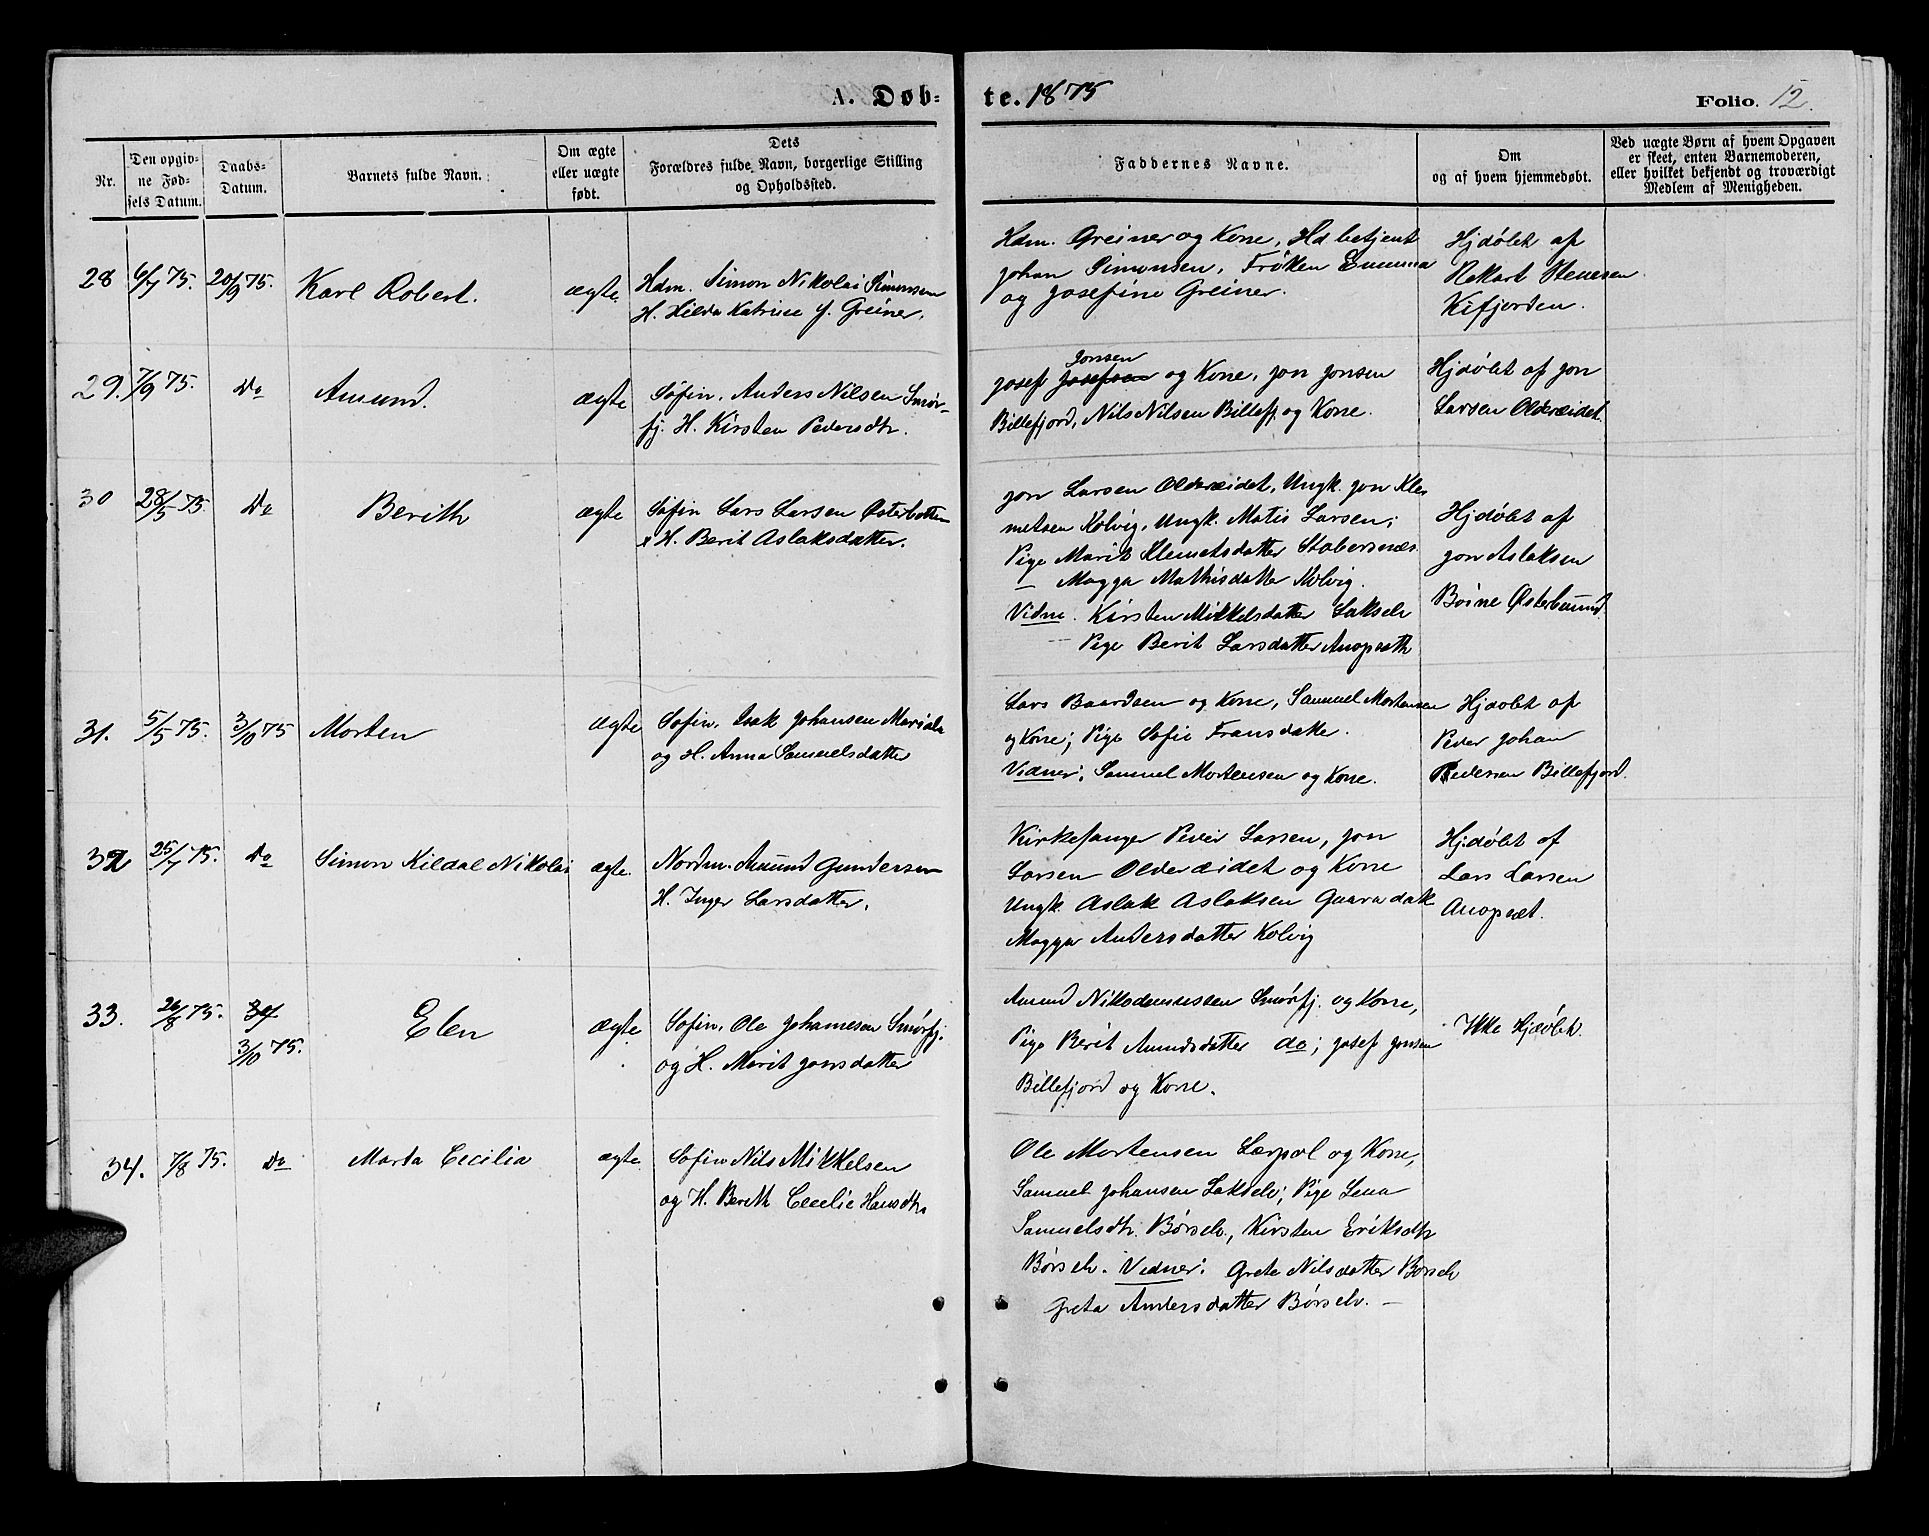 A. Døb-
te. 1875
Folio. 12.
Nr.
Den opgiv-
ne Fød-
sels Datum.
Daabs-
Datum.
Barnets fulde Navn.
Om ægte
eller uægte
født.
Dets
Forældres fulde Navn, borgerlige Stilling
og Opholdssted.
Faddernes Navne.
Om
og af hvem hjemmedøbt.
Ved uægte Børn af hvem Opgaven
er skeet, enten Barnemoderen,
eller hvilket bekjendt og troværdigt
Medlem af Menigheden.
28 6/7 75. 20/9 75. Karl Robert. ægte.
Hdm. Simon Nikolai Simonsen
H. Hilda Katrine f. Greiner.
Hdm. Greiner og Kone, Hd betjent
Johan Simonsen, Frøken Emma
og Josefine Greiner.
Hjdøbt af
Stenersen
Kifjorden.
29. 7/9 75. Do Amund. ægte
Søfin. Anders Nilsen Smør-
fj. H. Kirsten Pedersdtr.
Jonsen
Josef Josefsen og Kone, Jon Jonsen
Billefjord, Nils Nilsen Billefj og Kone.
Hjdøbt af Jon
Larsen Oldereidet.
30 28/5 75 Do Berith ægte
Søfin Lars Larsen Østerbotten
& H. Berit Aslaksdatter.
Jon Larsen Oldereidet, Ungk. Jon Kle-
metsen Kolvig, Ungk. Matis Larsen;
Pige Marit Klemetsdatter Stabersnæs.
— Magga Mathisdatter Kolvig.
Vidne. Kirsten Mikkelsdatter Lakselv
Pige Berit Larsdatter Anopseth
Hjdøbt af
Jon Aslaksen
Boine Østerbunnd.
31. 5/5 75. 3/10 75 Morten ægte
Søfin. Isak Johansen Mariala
og H. Anna Samuelsdatter
Lars Baardsen og Kone, Samuel Mortensen
og Kone; Pige Sofie Fransdatter.
Vidner; Samuel Mortensen og Kone.
Hjdøbt af
Peder Johan
Pedersen Billefjord.
32 25/7 75. Do Simon Kildal Nikolai ægte.
Nordm. Amund Gundersen
H. Inger Larsdatter.
Kirkesanger Peder Larsen, Jon
Larsen Oldereidet og Kone
Ungk. Aslak Aslaksen Guaradak
Magga Andersdatter Kolvig
Hjdøbt af
Lars Larsen
Anopset.
33. 26/8 75. 3/10 75. Elen ægte
Søfin. Ole Johanesen Smørfj.
og H. Marit Jonsdatter
Amund Nikodemussen Smørfj. og Kone,
Pige Berit Amundsdatter do; Josef Jonsen
Billefjord og Kone.
Ikke Hjdøbt.
34. 7/8 75. Do Marta Cecilia ægte.
Søfin Nils Mikkelsen
og H. Berith Cecilie Hansdtr.
Ole Mortensen Lerpol og Kone,
Samuel Johansen Lakselv; Pige Lena
Samuelsdtr. Børselv., Kirsten Eriksdtr
Børselv. Vidner: Grete Nilsdatter Børselv
Greta Andersdatter Børselv. —